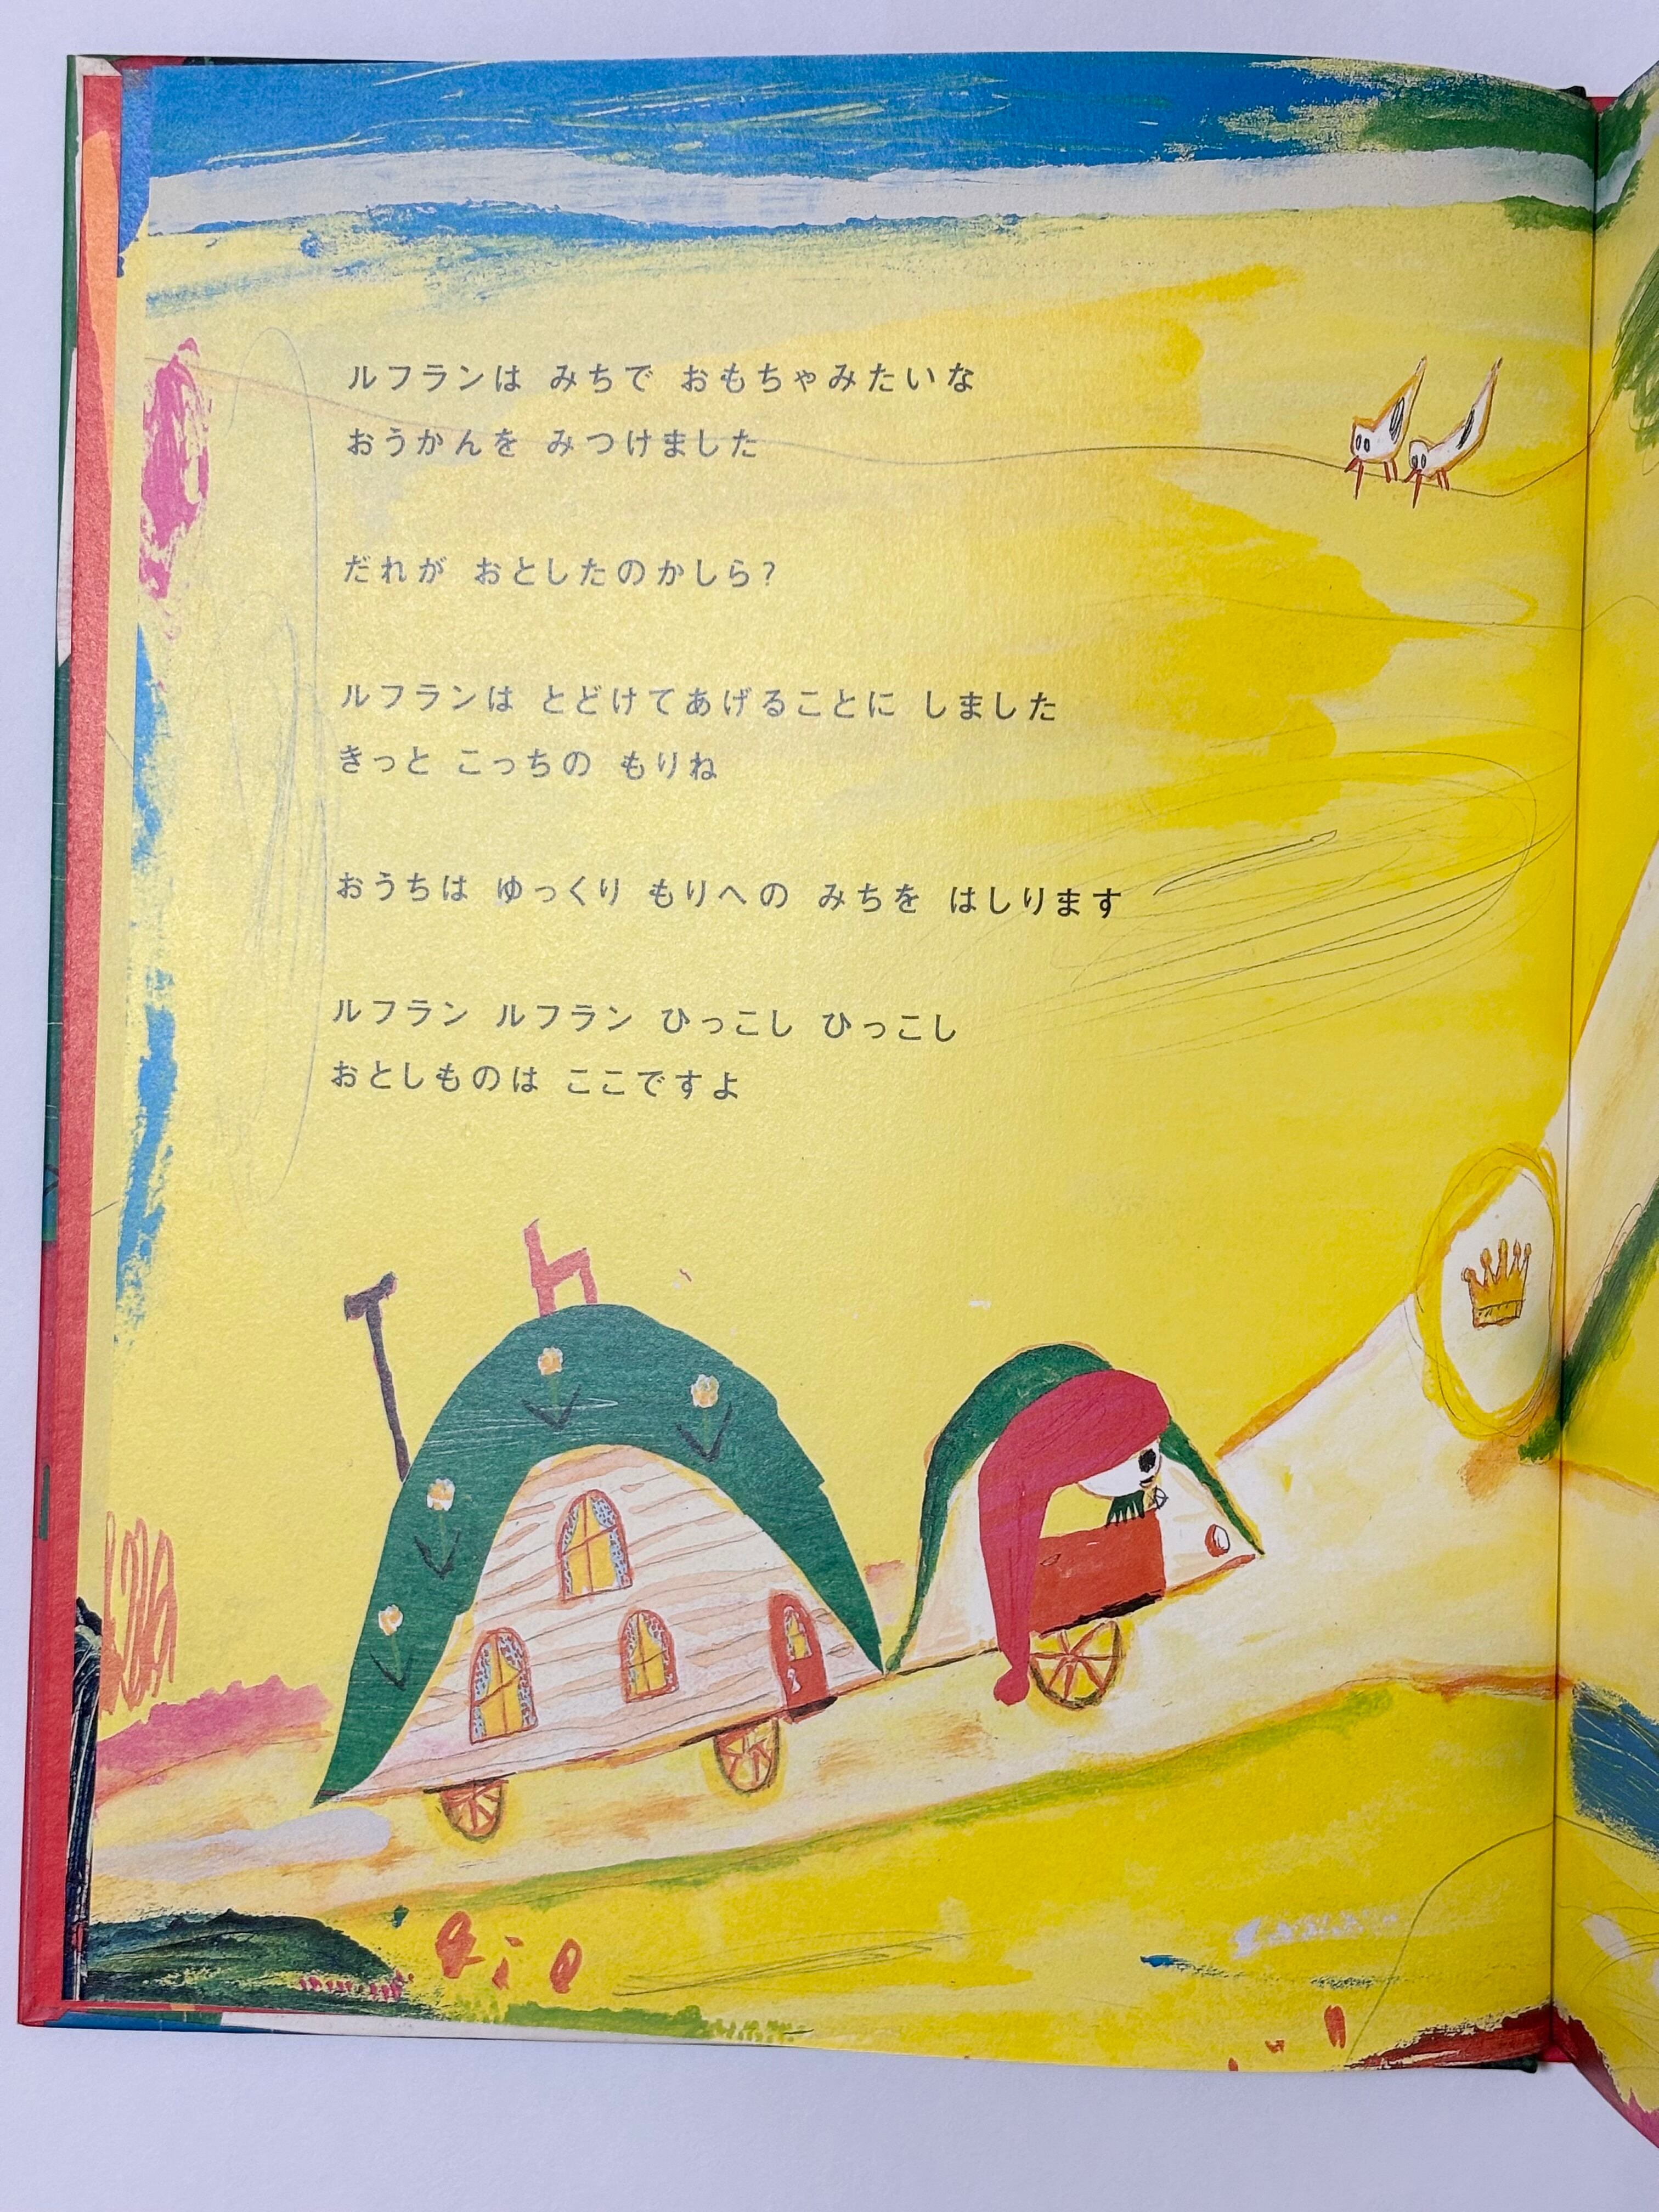 ルフランは みちで おもちゃみたいな
おうかんを みつけました
だれが おとしたのかしら?
ルフランは とどけてあげることに しました
きっと こっちの もりね
おうちは ゆっくり もりへの みちを はしります
ルフラン ルフラン ひっこし ひっこし
おとしものは ここですよ